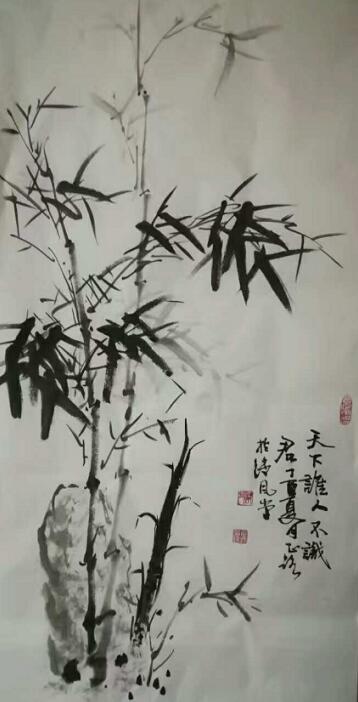 天下誰人不識
君丁酉夏月正波
於清風堂